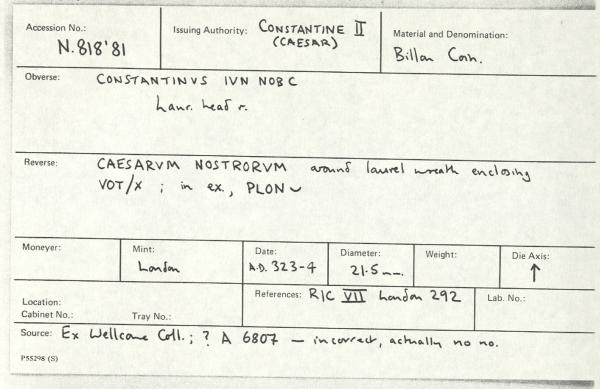 Accession No.: N.818'81
Issuing Authority: CONSTANTINE II
(CAESAR)
Material and Denomination:
Billon Coin.
Obverse: CONSTANTINVS IVN NOB C
Laur. head r.
Reverse: CAESARVM NOSTRORVM around laurel wreath enclosing
VOT/X ; in ex., PLON ᴗ
Moneyer:
Mint:
London
Date:
A.D. 323-4
Diameter:
21.5 mm.
Weight:
Die Axis:
↑
Location:
Cabinet No.: Tray No.:
References: RIC VII London 292
Lab. No.:
Source: Ex Wellcome Coll.; ? A 6807 — incorrect, actually no no.
P55298 (S)